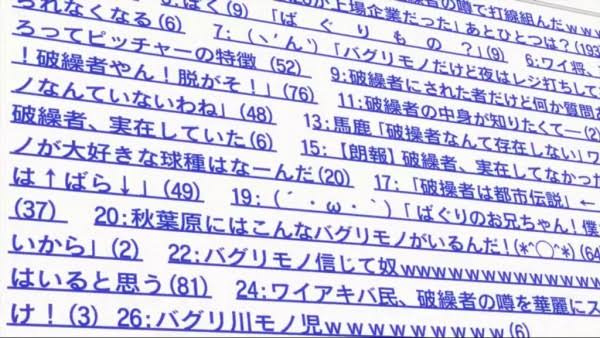 の噂で打線組んだｗｗ
が上場企業だった」あとひとつは？(193)
られなくなる(6) 7:(ヽ'ん`)「バグリモノだけど夜はレジ打ちして
(9) 「ば ぐ り も の ？」(9) 6:ワイ将、
ろってピッチャーの特徴 (52) 9:破繰者にされた者だけど何か質問
！破繰者やん！脱がそ！」(76) 11:破繰者の中身が知りたくて―(2)
ノなんていないわね」(48) 13:馬鹿「破操者なんて存在しない」ワ
破繰者、実在していた(6) 15:【朗報】破繰者、実在してなかった
ノが大好きな球種はなーんだ(20) 17:「破操者は都市伝説」←
は↑ばら↓」(49) 19:（´・ω・｀）「ばぐりのお兄ちゃん！僕
(37) 20:秋葉原にはこんなバグリモノがいるんだ！(*^◯^*)(64
いから」(2) 22:バグリモノ信じて奴wwwwwwwwwwwwwww
はいると思う(81) 24:ワイアキバ民、破繰者の噂を華麗にス
け！(3) 26:バグリ川モノ児ｗｗｗｗｗｗｗｗｗ(6)